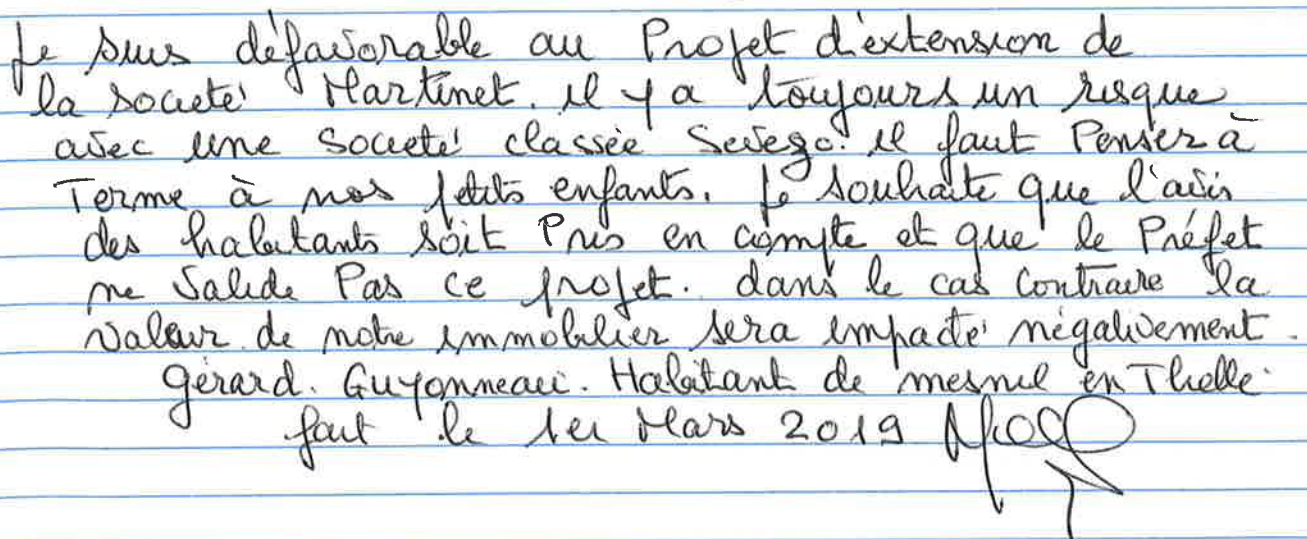 Je suis défavorable au Projet d'extension de
la société Martinet. il y a toujours un risque
avec une société classée Sevego. il faut Penser à
Terme à nos petits enfants. Je souhaite que l'avis
des habitants soit Pris en compte et que le Préfet
ne Valide Pas ce projet. dans le cas Contraire la
Valeur de notre immobilier sera impacté négativement.
Gérard. Guyonneau. Habitant de mesnil en Thelle.
fait le 1er Mars 2019